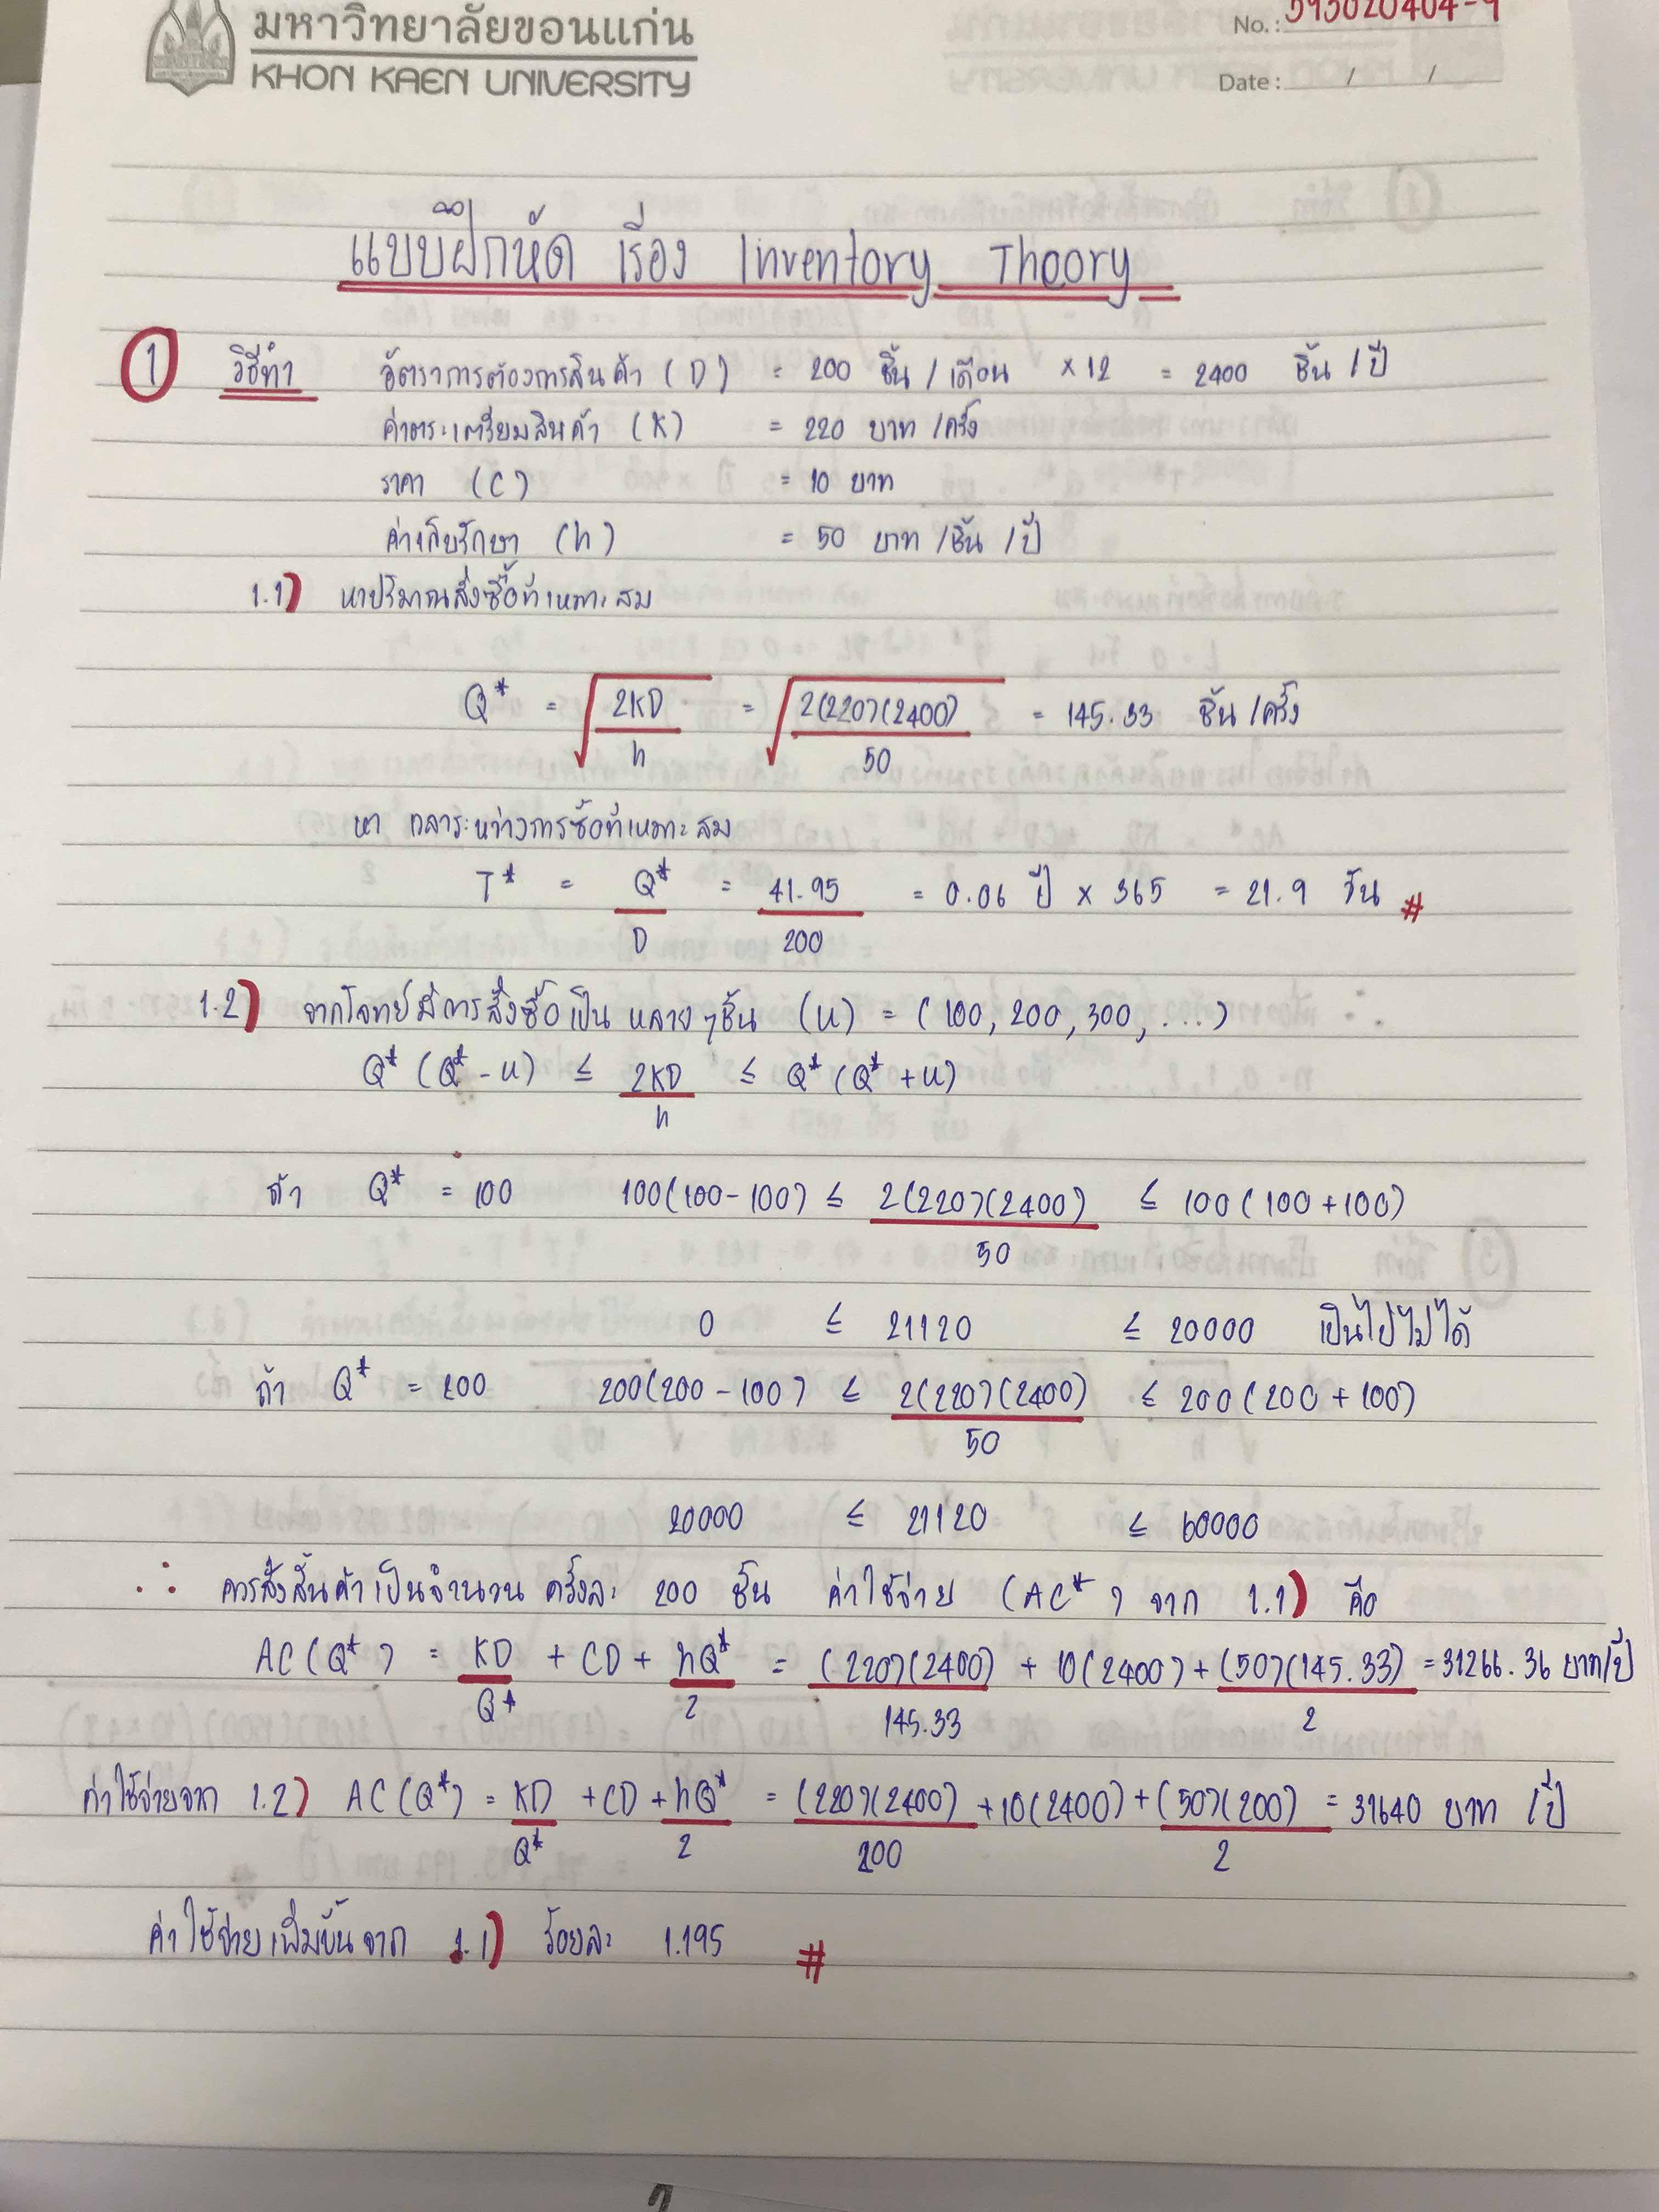 มหาวิทยาลัยขอนแก่น
KHON KAEN UNIVERSITY
No.: 593020404-9
Date: / /
แบบฝึกหัด เรื่อง Inventory Theory
1 วิธีทำ อัตราการต้องการสินค้า (D) = 200 ชิ้น / เดือน × 12 = 2400 ชิ้น / ปี
(K) = 220 บาท /ครั้ง
ราคา (C) = 10 บาท
ค่าเก็บรักษา (h) = 50 บาท /ชิ้น /ปี
1.1) หาปริมาณสั่งซื้อที่เหมาะสม
Q* = √(2KD / h) = √(2(220)(2400) / 50) = 145.33 ชิ้น /ครั้ง
หา เวลาระหว่างการซื้อที่เหมาะสม
T* = Q* / D = 41.95 / 200 = 0.06 ปี × 365 = 21.9 วัน #
1.2) จากโจทย์มีการสั่งซื้อเป็น หลายๆชิ้น (u) = (100, 200, 300, ...)
Q* (Q* - u) ≤ 2KD / h ≤ Q* (Q* + u)
ถ้า Q* = 100 100(100-100) ≤ 2(220)(2400) / 50 ≤ 100(100+100)
0 ≤ 21120 ≤ 20000 เป็นไปไม่ได้
ถ้า Q* = 200 200(200-100) ≤ 2(220)(2400) / 50 ≤ 200(200+100)
20000 ≤ 21120 ≤ 60000
∴ ควรสั่งสินค้าเป็นจำนวน ครั้งละ 200 ชิ้น ค่าใช้จ่าย (AC*) จาก 1.1) คือ
AC(Q*) = KD / Q* + CD + hQ* / 2 = (220)(2400) / 145.33 + 10(2400) + (50)(145.33) / 2 = 31266.36 บาท/ปี
ค่าใช้จ่ายจาก 1.2) AC(Q*) = KD / Q* + CD + hQ* / 2 = (220)(2400) / 200 + 10(2400) + (50)(200) / 2 = 31640 บาท /ปี
ค่าใช้จ่ายเพิ่มขึ้นจาก 1.1) ร้อยละ 1.195 #